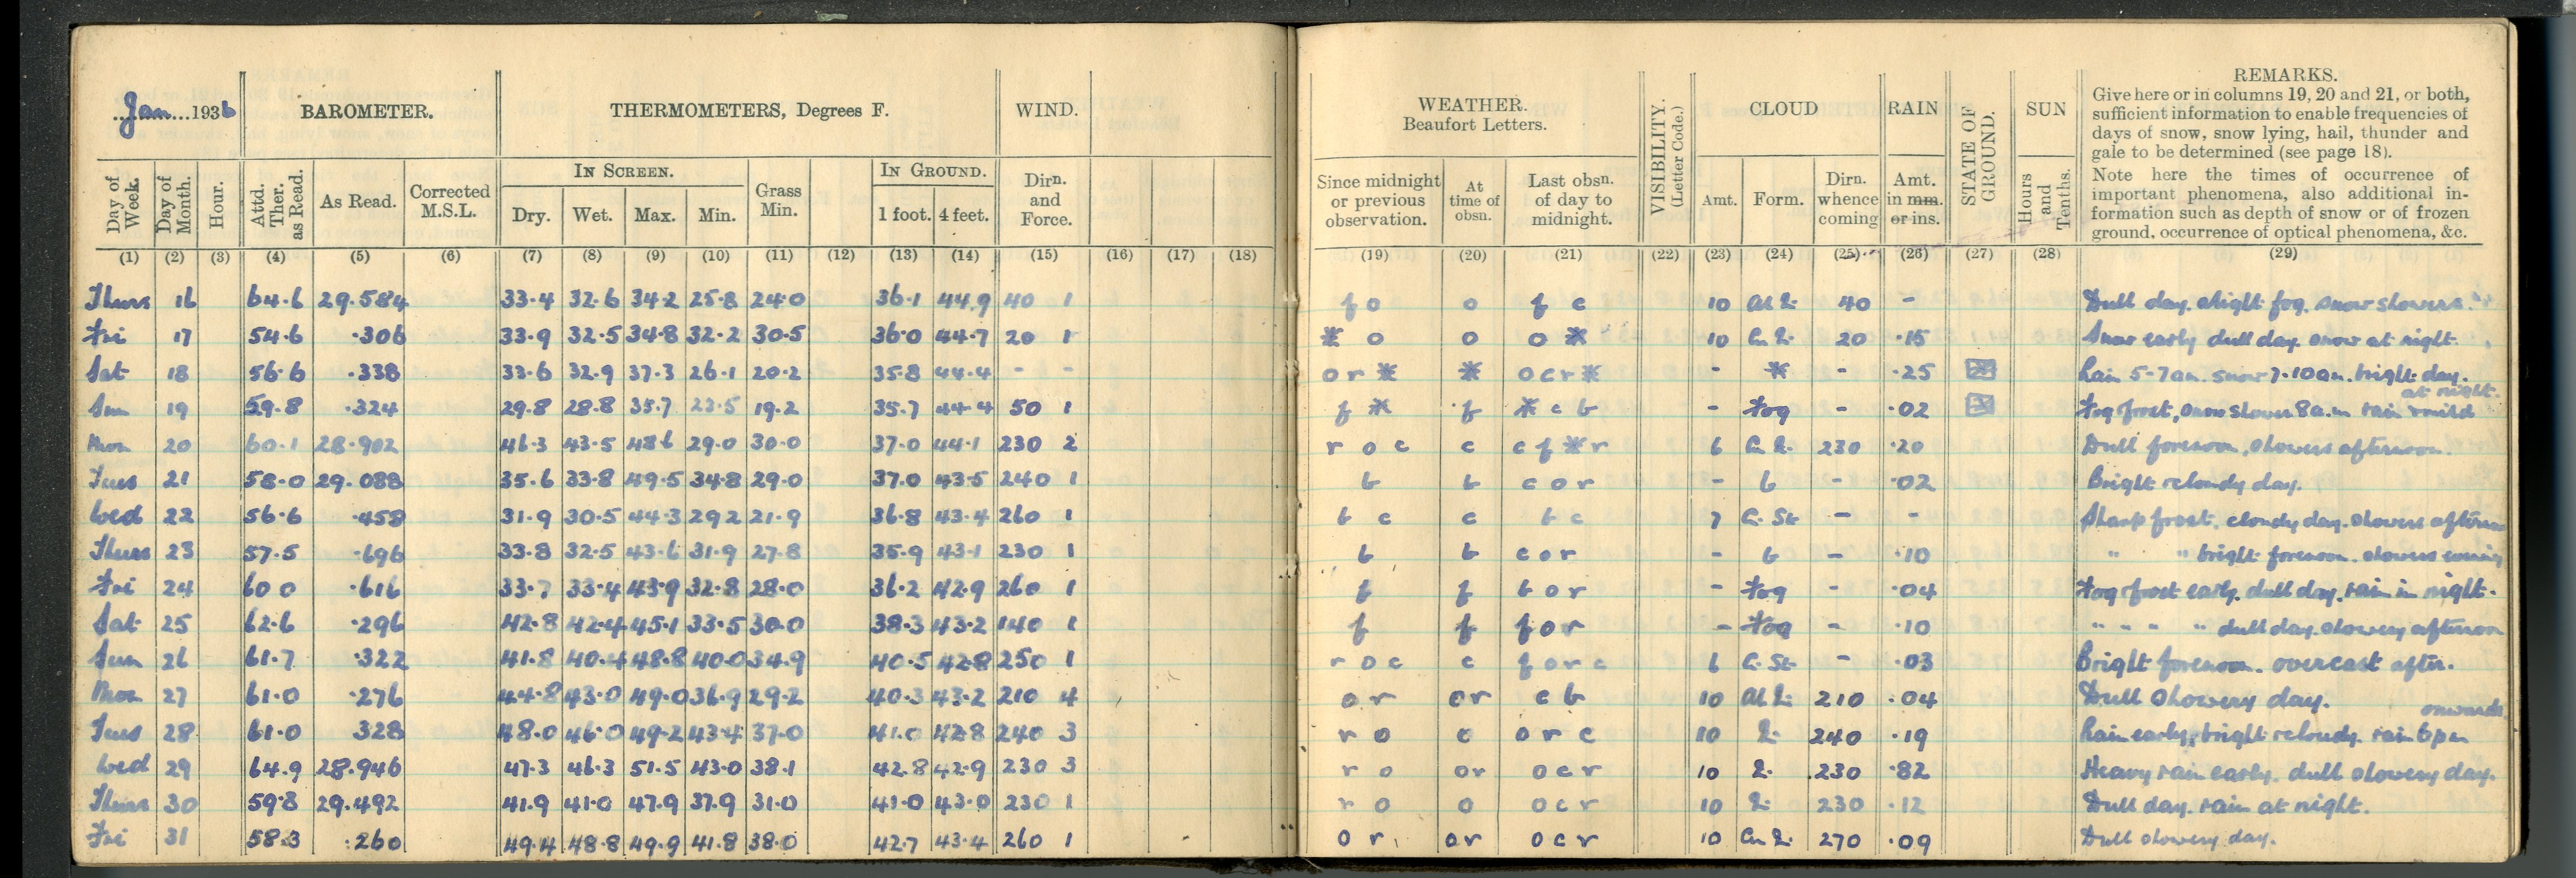 Jan 1936 BAROMETER. THERMOMETERS, Degrees F. WIND. WEATHER. Beaufort Letters. VISIBILITY. (Letter Code.) CLOUD RAIN STATE OF GROUND. SUN REMARKS.
Give here or in columns 19, 20 and 21, or both,
sufficient information to enable frequencies of
days of snow, snow lying, hail, thunder and
gale to be determined (see page 18).
Note here the times of occurrence of
important phenomena, also additional in-
formation such as depth of snow or of frozen
ground, occurrence of optical phenomena, &c.
IN SCREEN. IN GROUND.
Day of Week. Day of Month. Hour. Attd. Ther. as Read. As Read. Corrected M.S.L. Dry. Wet. Max. Min. Grass Min. 1 foot. 4 feet. Dirn. and Force. Since midnight or previous observation. At time of obsn. Last obsn. of day to midnight. Amt. Form. Dirn. whence coming Amt. in mm. or ins. Hours and Tenths.
(1) (2) (3) (4) (5) (6) (7) (8) (9) (10) (11) (12) (13) (14) (15) (16) (17) (18) (19) (20) (21) (22) (23) (24) (25) (26) (27) (28) (29)
Thurs 16 64.6 29.584 33.4 32.6 34.2 25.8 24.0 36.1 44.9 40 1 f o o f c 10 40 - Dull day. slight fog. snow showers.
Fri 17 54.6 .306 33.9 32.5 34.8 32.2 30.5 36.0 44.7 20 1 * o o o * 10 20 .15 Snow early dull day. snow at night.
Sat 18 56.6 .338 33.6 32.9 37.3 26.1 20.2 35.8 44.4 - - o r * * o c r * - * - .25 Rain 5-7am. snow 7-10am. bright day.
at night.
Sun 19 59.8 .324 29.8 28.8 35.7 23.5 19.2 35.7 44.4 50 1 f * f * c b - Fog - .02 Fog frost, snow shower 8a.m rain & mild
Mon 20 60.1 28.902 46.3 43.5 48.6 29.0 30.0 37.0 44.1 230 2 r o c c c f * r 6 230 .20 Dull forenoon, showers afternoon.
Tues 21 58.0 29.088 35.6 33.8 49.5 34.8 29.0 37.0 43.5 240 1 b b c o r - b - .02 Bright & cloudy day.
Wed 22 56.6 .458 31.9 30.5 44.3 29.2 21.9 36.8 43.4 260 1 b c c b c 7 - - Sharp frost. cloudy day. showers afternoon
Thurs 23 57.5 .696 33.8 32.5 43.6 31.9 27.8 35.9 43.1 230 1 b b c o r - b - .10 " " bright forenoon. showers evening
Fri 24 60.0 .616 33.7 33.4 43.9 32.8 28.0 36.2 42.9 260 1 f f b o r - Fog - .04 Fog & frost early. dull day. rain in night.
Sat 25 62.6 .296 42.8 42.4 45.1 33.5 30.0 38.3 43.2 140 1 f f f o r - Fog - .10 " " " " dull day. showery afternoon
Sun 26 61.7 .322 41.8 40.4 48.8 40.0 34.9 40.5 42.8 250 1 r o c c f o r c 6 - .03 Bright forenoon. overcast after.
Mon 27 61.0 .276 44.8 43.0 49.0 36.9 29.2 40.3 43.2 210 4 o r o r c b 10 210 .04 Dull showery day.
onwards
Tues 28 61.0 328 48.0 46.0 49.2 43.4 37.0 41.0 42.8 240 3 r o o o r c 10 240 .19 Rain early, bright & cloudy. rain 6pm
Wed 29 64.9 28.946 47.3 46.3 51.5 43.0 38.1 42.8 42.9 230 3 r o o r o c r 10 230 .82 Heavy rain early. dull showery day.
Thurs 30 59.8 29.492 41.9 41.0 47.9 37.9 31.0 41.0 43.0 230 1 r o o o c r 10 230 .12 Dull day. rain at night.
Fri 31 58.3 .260 49.4 48.8 49.9 41.8 38.0 42.7 43.4 260 1 o r o r o c r 10 270 .09 Dull showery day.